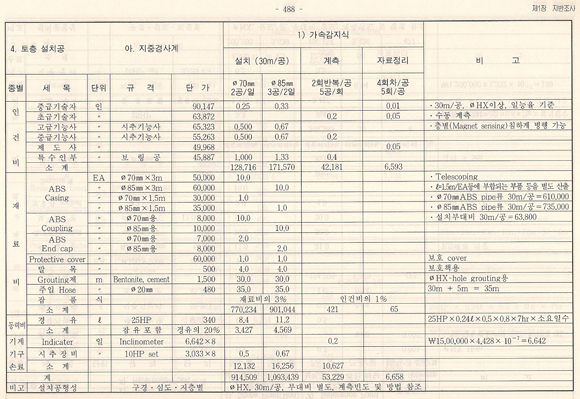 - 488 -
제1장 지반조사
4. 토층 설치공 아. 지중경사계 1) 가속감지식
설치 (30m/공) 계측 자료정리 비 고
종별 세 목 단위 규 격 단 가 ø70㎜ 2공/일 ø85㎜ 3공/2일 2회반복/공 5공/회 4회차/공 5회/공
인 건 비
중급기술자 인 90,147 0.25 0.33 0.01 ·30m/공, øHX이상, 일능율 기준
초급기술자 〃 63,872 0.2 0.05 ·수동 계측
고급기능사 〃 시추기능사 65,323 0.500 0.67 ·층별(Magnet sensing)침하계 병행 가능
중급기능사 〃 시추기능사 55,263 0.500 0.67 0.2
제 도 사 〃 49,968 0.05
특수인부 〃 보링공 45,887 1,000 1.33 0.4
소 계 128,716 171,570 42,181 6,593
재 료 비
ABS Casing EA ø70㎜×3m 50,000 10.0 ·Telescoping
〃 ø85㎜×3m 60,000 10.0 ·ℓ=1.5m/EA등에 부합되는 부품 등을 별도 산출
〃 ø70㎜×1.5m 30,000 1.0 ·ø70㎜ABS pipe류 30m/공=610,000
〃 ø85㎜×1.5m 35,000 1.0 ·ø85㎜ABS pipe류 30m/공=735,000
ABS Coupling 〃 ø70㎜용 8,000 10.0 ·설치부대비 30m/공=63,800
〃 ø85㎜용 10,000 10.0
ABS End cap 〃 ø70㎜용 7,000 2.0
〃 ø85㎜용 8,000 2.0
Protective cover 〃 60,000 1.0 1.0 보호 cover
말 목 〃 500 4.0 4.0 보호책용
Grouting제 m Bentonite, cement 1,500 30.0 30.0 øHX-hole grouting용
주입 Hose 〃 ø20㎜ 480 35.0 35.0 30m + 5m = 35m
잡 품 식 재료비의 3% 인건비의 1%
소 계 770,234 901,044 421 65
동력비 경 유 ℓ 25HP 340 8.4 11.2 25HP×0.24ℓ×0.5×0.8×7hr×소요일수
소 계 잡유 포함 경유의 20% 3,427 4,569
기계 Indicater 일 Inclinometer 6,642×8 0.2 ₩15,00,000×4,428×10⁻⁷=6,642
기구 시추장비 〃 10HP set 3,033×8 0.5 0.67
손료 소 계 12,132 16,256 10,627
계 914,509 1,093,439 53,229 6,658
비고 설치공형성 구경·심도·지층별 øHX, 30m/공, 부대비 별도, 계측빈도 및 방법 참조